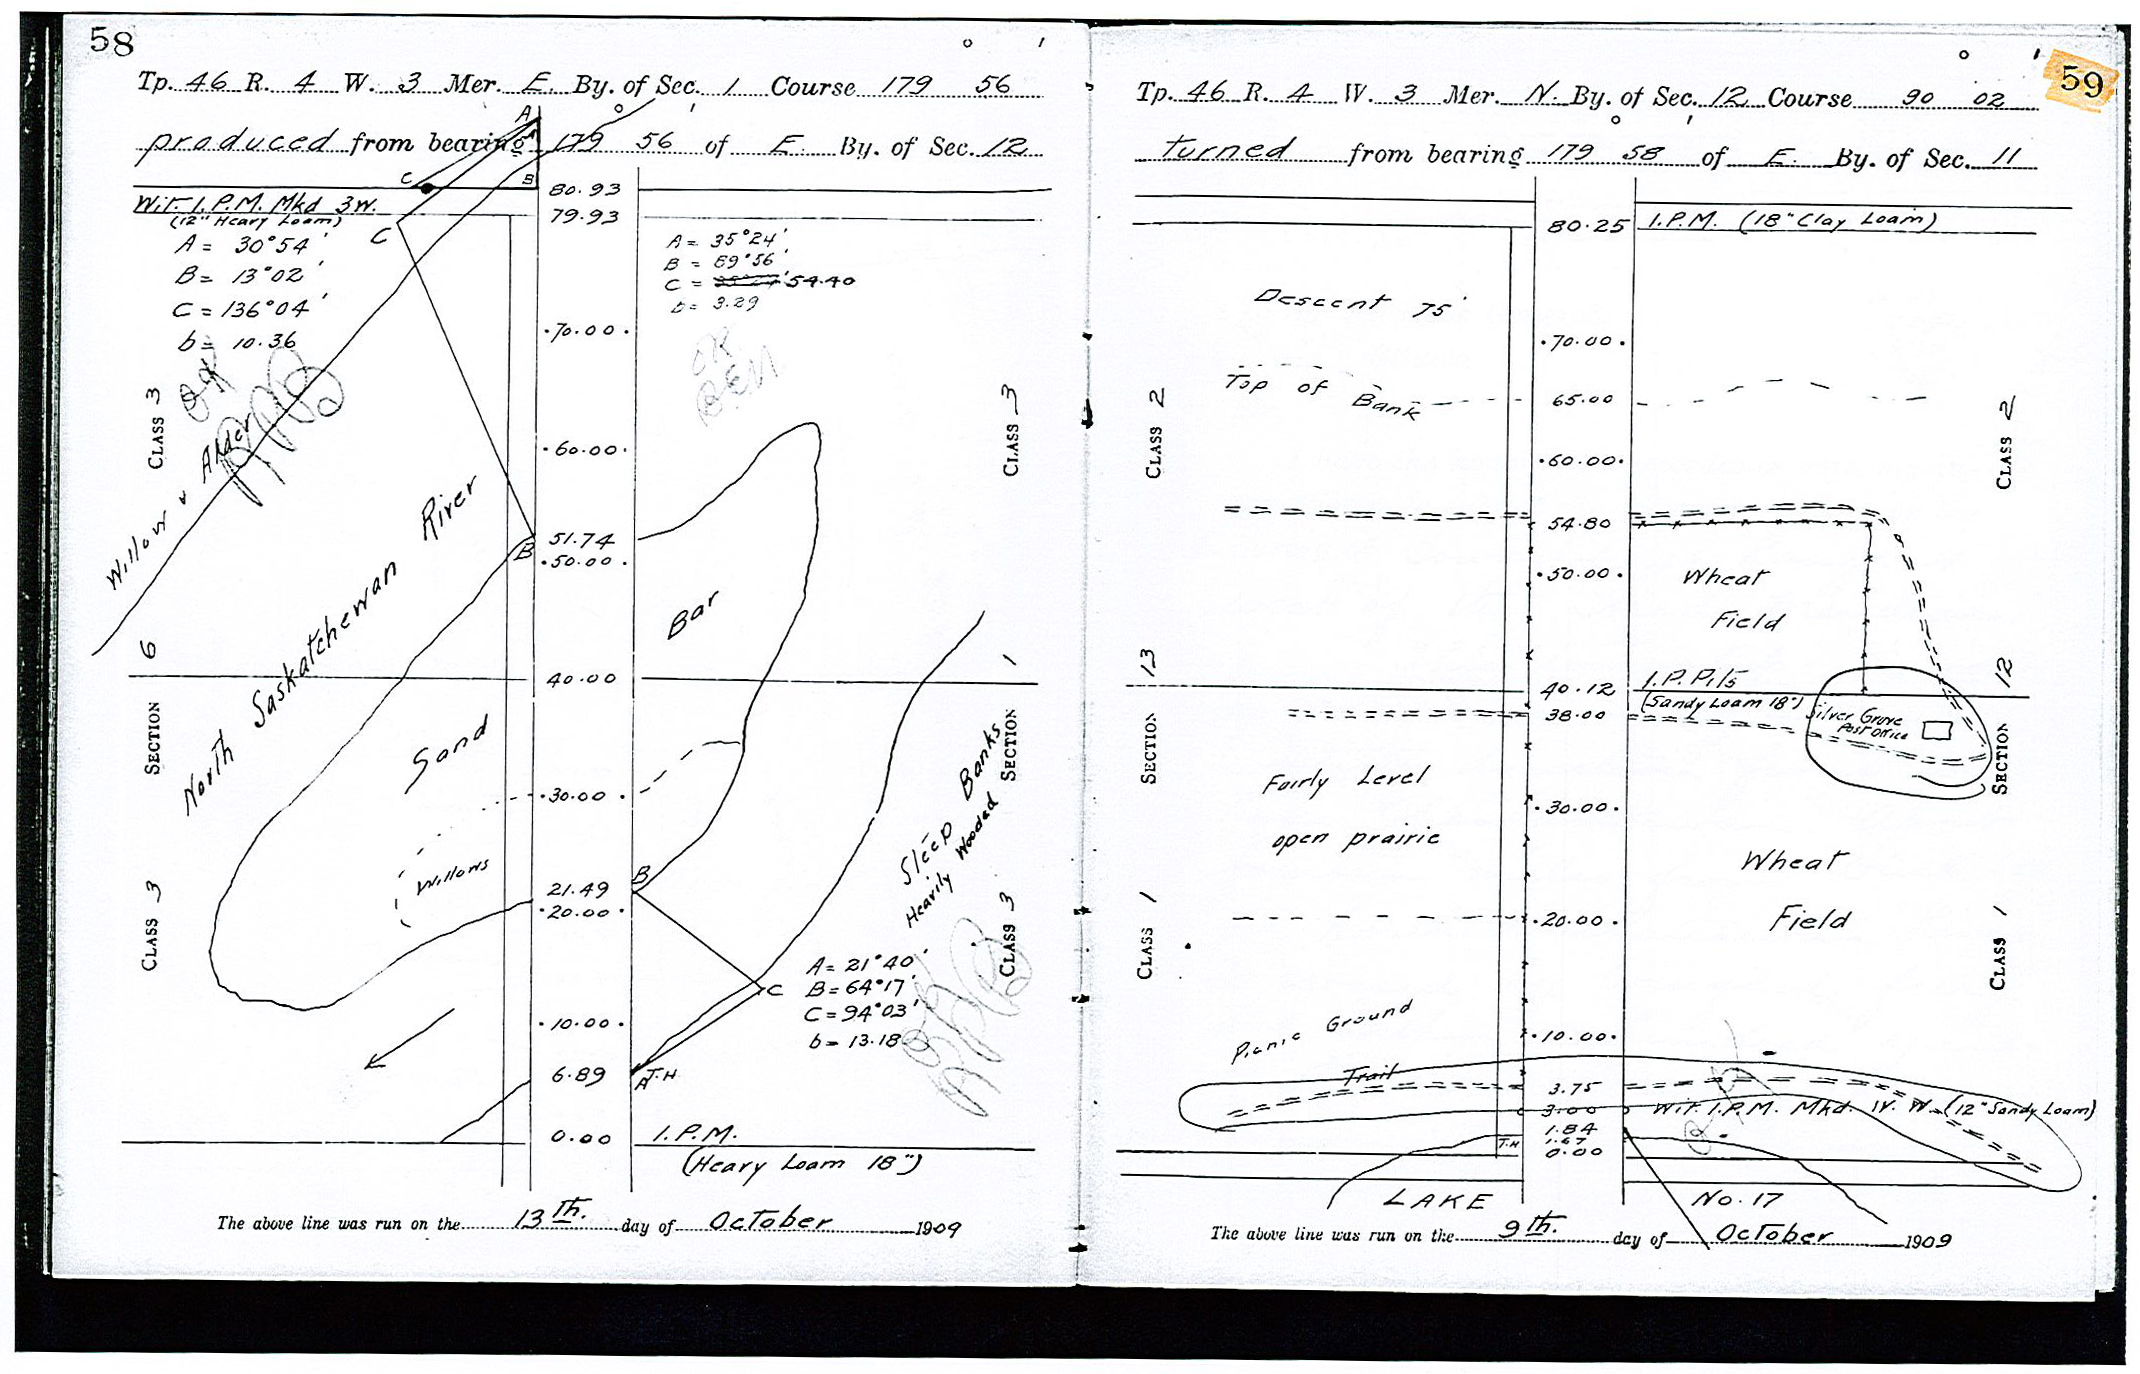 58
Tp. 46 R. 4 W. 3 Mer. E. By. of Sec. 1 Course 179° 56'
produced from bearing 179° 56' of E. By. of Sec. 12
A
C
B
80.93
Wit. I.P.M. Mkd 3W.
79.93
(12" Heavy Loam)
C
A = 30°54'
B = 13°02'
C = 136°04'
b = 10.36
A = 35°24'
B = 89°56'
C = 54.40
b = 3.29
OK
OK
BEM
.70.00.
CLASS 3
CLASS 3
.60.00.
Willow & Alder
North Saskatchewan River
51.74
B
.50.00.
Bar
6
1
40.00
SECTION
SECTION
Sand
.30.00.
Steep Banks
Heavily Wooded
Willows
B
21.49
.20.00.
CLASS 3
CLASS 3
A = 21°40'
B = 64°17'
C = 94°03'
b = 13.18
C
.10.00.
6.89
A T.H
0.00
I.P.M.
(Heavy Loam 18")
The above line was run on the 13th. day of October 1909
59
Tp. 46 R. 4 W. 3 Mer. N. By. of Sec. 12 Course 90° 02'
turned from bearing 179° 58' of E. By. of Sec. 11
80.25 I.P.M. (18" Clay Loam)
Descent 75'
.70.00.
Top of Bank
65.00
CLASS 2
CLASS 2
.60.00.
54.80
.50.00.
Wheat
Field
13
12
40.12
I.P. Pits
(Sandy Loam 18")
38.00
Silver Grove
Post Office
SECTION
SECTION
Fairly Level
.30.00.
open prairie
Wheat
Field
.20.00.
CLASS 1
CLASS 1
Picnic Ground
.10.00.
Trail
3.75
3.00
Wit. I.P.M. Mkd. W. W. (12" Sandy Loam)
1.84
T.H
1.67
0.00
LAKE No. 17
The above line was run on the 9th. day of October 1909